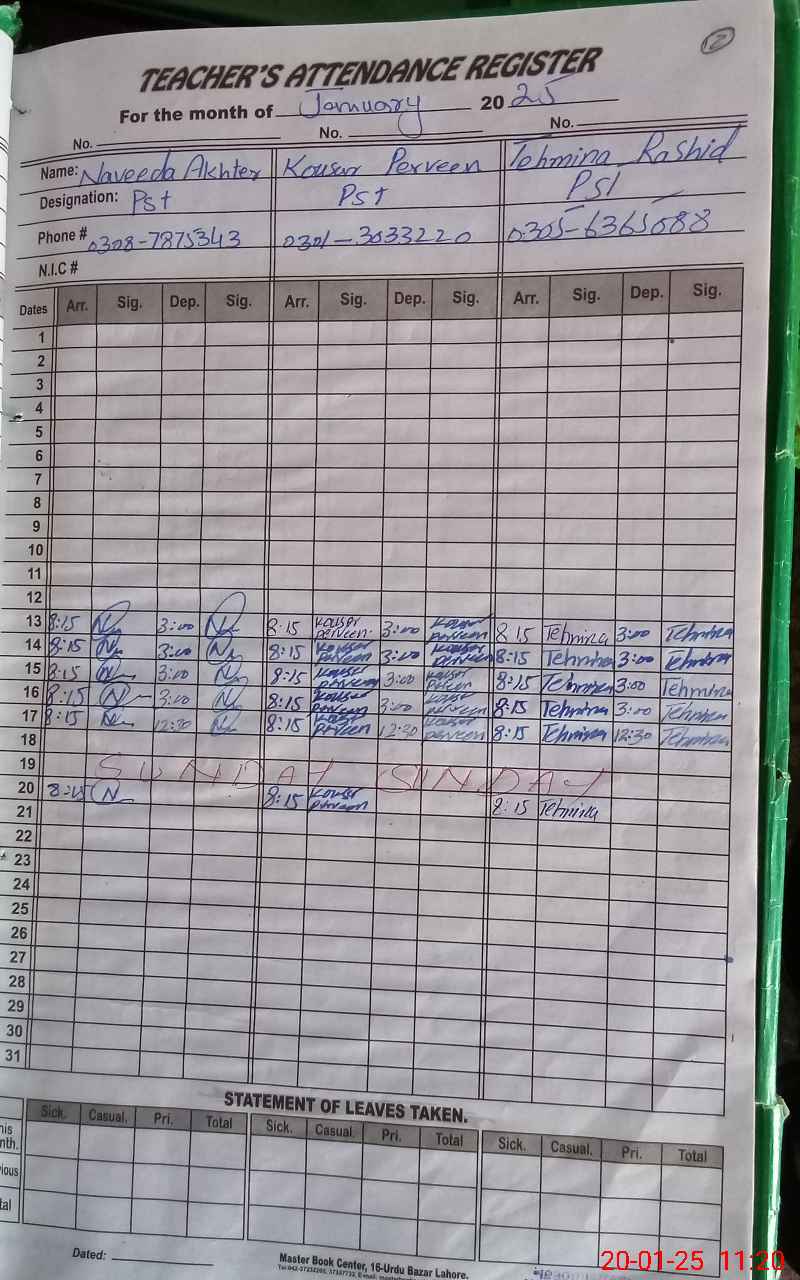 12
TEACHER'S ATTENDANCE REGISTER
For the month of January 2025
No. No. No.
Name: Naveeda Akhter Kousar Perveen Tehmina Rashid
Designation: Pst Pst Pst
Phone # 0308-7875343 0301-3033220 0305-6365088
N.I.C #
Dates Arr. Sig. Dep. Sig. Arr. Sig. Dep. Sig. Arr. Sig. Dep. Sig.
1
2
3
4
5
6
7
8
9
10
11
12
13 8:15 N 3:00 N 8:15 Kousar Perveen 3:00 Kousar Perveen 8:15 Tehmina 3:00 Tehmina
14 8:15 N 3:00 N 8:15 Kousar Perveen 3:00 Kousar Perveen 8:15 Tehmina 3:00 Tehmina
15 8:15 N 3:00 N 8:15 Kousar Perveen 3:00 Kousar Perveen 8:15 Tehmina 3:00 Tehmina
16 8:15 N 3:00 N 8:15 Kousar Perveen 3:00 Kousar Perveen 8:15 Tehmina 3:00 Tehmina
17 8:15 N 12:30 N 8:15 Kousar Perveen 12:30 Kousar Perveen 8:15 Tehmina 12:30 Tehmina
18
19 SUNDAY SUNDAY
20 8:15 N 8:15 Kousar Perveen 8:15 Tehmina
21
22
23
24
25
26
27
28
29
30
31
STATEMENT OF LEAVES TAKEN.
Sick. Casual. Pri. Total Sick. Casual. Pri. Total Sick. Casual. Pri. Total
his
nth.
vious
tal
Dated:
Master Book Center, 16-Urdu Bazar Lahore.
20-01-25 11:20